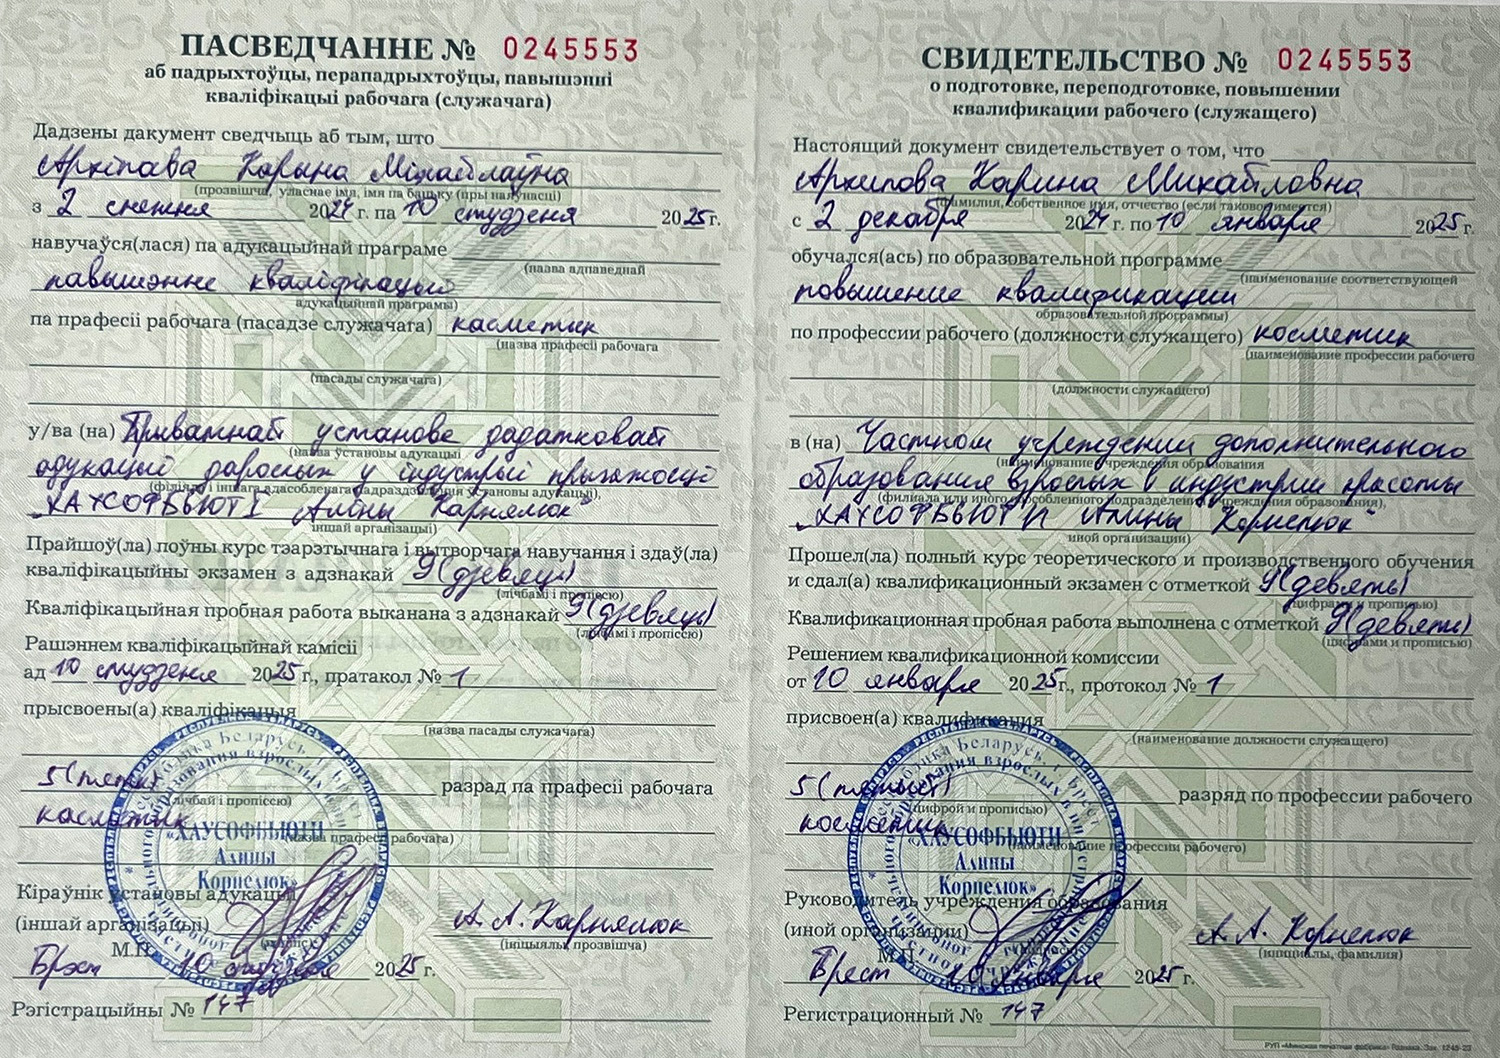 ПАСВЕДЧАННЕ № 0245553
аб падрыхтоўцы, перападрыхтоўцы, павышэнні
кваліфікацыі рабочага (служачага)
Дадзены дакумент сведчыць аб тым, што
Архіпава Карына Міхайлаўна
(прозвішча, уласнае імя, імя па бацьку (пры наяўнасці)
з 2 снежня 2024 г. па 10 студзеня 2025 г.
навучаўся(лася) па адукацыйнай праграме
(назва адпаведнай
павышэнне кваліфікацыі
адукацыйнай праграмы)
па прафесіі рабочага (пасадзе служачага) касметык
(назва прафесіі рабочага
(пасады служачага)
у/ва (на) Прыватнай установе дадатковай
(назва ўстановы адукацыі
адукацыі дарослых у індустрыі прыгажосці
(філіяла і іншага адасобленага падраздзялення ўстановы адукацыі),
„ХАУСОФБЬЮТІ Аліны Карнялюк“
іншай арганізацыі)
Прайшоў(ла) поўны курс тэарэтычнага і вытворчага навучання і здаў(ла)
кваліфікацыйны экзамен з адзнакай 9(дзевяць)
(лічбамі і пропіссю)
Кваліфікацыйная пробная работа выканана з адзнакай 9(дзевяць)
(лічбамі і пропіссю)
Рашэннем кваліфікацыйнай камісіі
ад 10 студзеня 2025 г., пратакол № 1
прысвоены(а) кваліфікацыя
(назва пасады служачага)
5 (пяты) разрад па прафесіі рабочага
(лічбай і пропіссю)
касметык
(назва прафесіі рабочага)
«ХАУСОФБЬЮТИ
Алины
Корнелюк»
Кіраўнік установы адукацыі
(іншай арганізацыі) А. А. Карнялюк
(подпіс) (ініцыялы, прозвішча)
М.П.
Брэст 10 студзеня 2025 г.
Рэгістрацыйны № 147
СВИДЕТЕЛЬСТВО № 0245553
о подготовке, переподготовке, повышении
квалификации рабочего (служащего)
Настоящий документ свидетельствует о том, что
Архипова Карина Михайловна
(фамилия, собственное имя, отчество (если таковое имеется)
с 2 декабря 2024 г. по 10 января 2025 г.
обучался(ась) по образовательной программе
(наименование соответствующей
повышение квалификации
образовательной программы)
по профессии рабочего (должности служащего) косметик
(наименование профессии рабочего
(должности служащего)
в (на) Частном учреждении дополнительного
(наименование учреждения образования
образования взрослых в индустрии красоты
(филиала или иного обособленного подразделения учреждения образования),
„ХАУСОФБЬЮТИ Алины Корнелюк“
иной организации)
Прошел(ла) полный курс теоретического и производственного обучения
и сдал(а) квалификационный экзамен с отметкой 9(девять)
(цифрами и прописью)
Квалификационная пробная работа выполнена с отметкой 9(девять)
(цифрами и прописью)
Решением квалификационной комиссии
от 10 января 2025 г., протокол № 1
присвоен(а) квалификация
(наименование должности служащего)
5 (пятый) разряд по профессии рабочего
(цифрой и прописью)
косметик
(наименование профессии рабочего)
«ХАУСОФБЬЮТИ
Алины
Корнелюк»
Руководитель учреждения образования
(иной организации) А. А. Корнелюк
(инициалы, фамилия)
М.П.
Брест 10 января 2025 г.
Регистрационный № 147
РУП «Минская печатная фабрика» Гознака. Зак. 1245-23